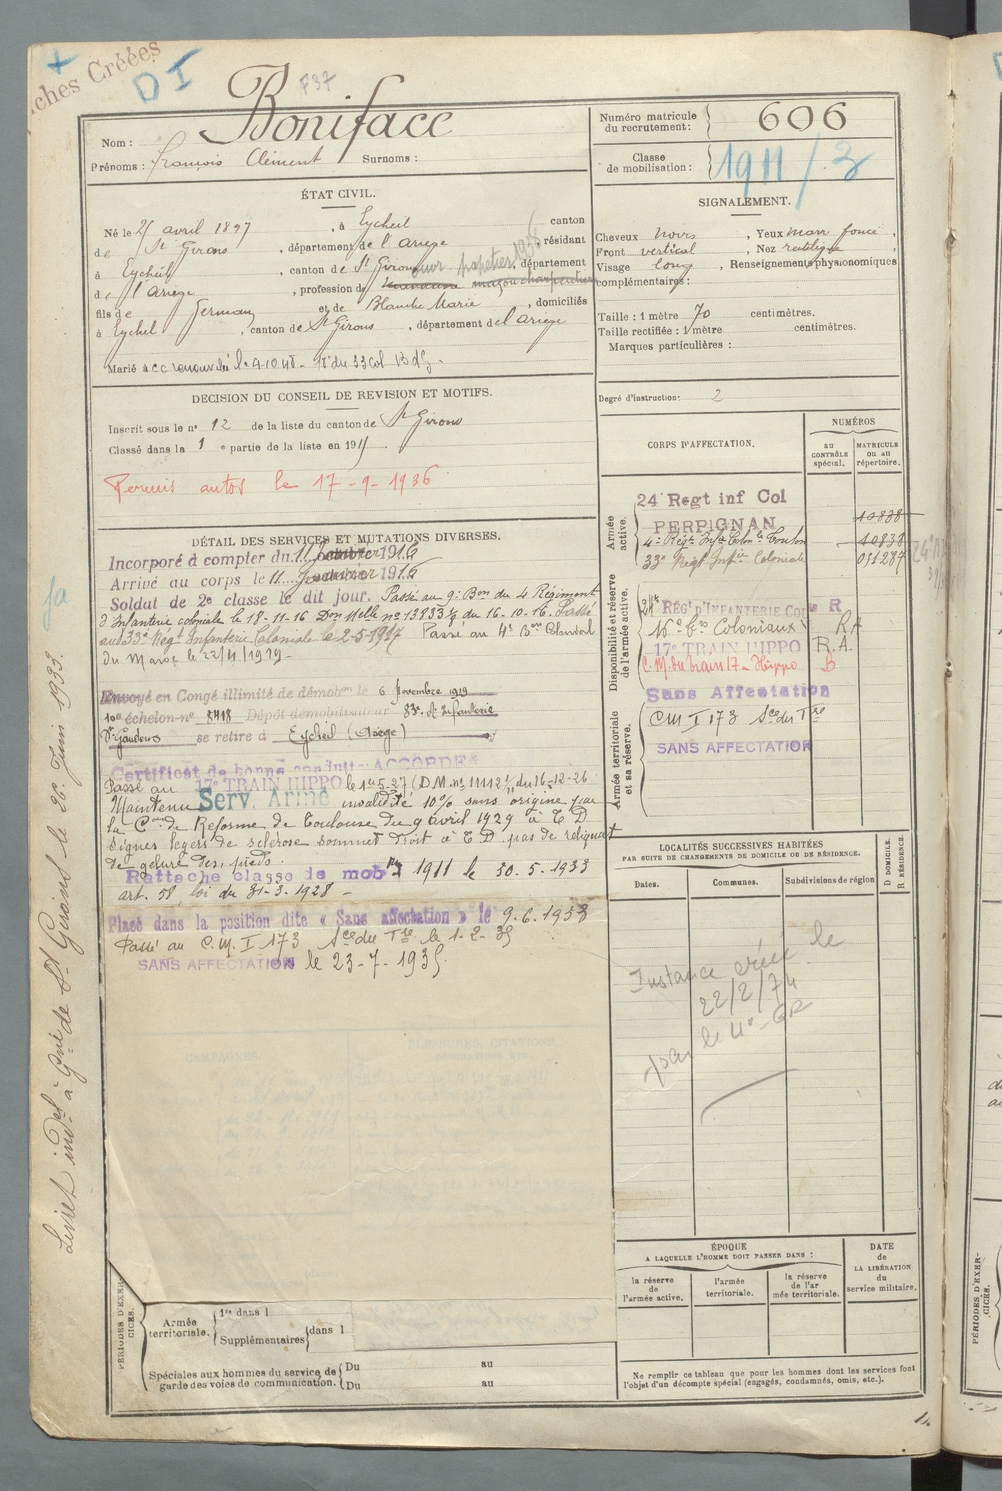 Fiches Créées
D I
F37
Nom : Boniface
Prénoms : François Clément Surnoms :
Numéro matricule du recrutement : 606
Classe de mobilisation : 1911/3
ÉTAT CIVIL.
Né le 25 avril 1897, à Eycheil canton
de St Girons, département de l'Ariège résidant
à Eycheil, canton de St Girons, département
de l'Ariège, profession de maçon charpentier
papetier 1936
fils de Germain et de Blanche Marie, domiciliés
à Eychel, canton de St Girons, département de l'Ariège
Marié à
SIGNALEMENT.
Cheveux noirs, Yeux marr foncé,
Front vertical, Nez rectiligne
Visage long, Renseignements physionomiques
complémentaires :
Taille : 1 mètre 70 centimètres.
Taille rectifiée : 1 mètre centimètres.
Marques particulières :
Degré d'instruction : 2
DECISION DU CONSEIL DE REVISION ET MOTIFS.
Inscrit sous le no 12 de la liste du canton de St Girons
Classé dans la 1 e partie de la liste en 191
Permis autos le 17-9-1936
DÉTAIL DES SERVICES ET MUTATIONS DIVERSES.
Incorporé à compter du 11 janvier 1916
Arrivé au corps le 11 janvier 1916
Soldat de 2e classe le dit jour. Passé au 9e Bon du 4 Régiment
d'Infanterie coloniale le 18-11-16 Don Melle no 13833 du 16-10-16. Passé
au 33e Régt Infanterie Coloniale le 2-5-1917 Passé au 4e Bon Colonial
du Maroc le 22/4/1919-
Envoyé en Congé illimité de démobon le 6 Novembre 1919
10e échelon-no 8418 Dépôt démobilisateur 83e d'Infanterie
St Gaudens se retire à Eycheil (Ariège)
Certificat de bonne conduite ACCORDÉ
Passé au 17e TRAIN HIPPO le 1er 5-27 (D.M. no 11112 du 16-12-26
Maintenu Serv. Armé invalidité 10% sans origine par
la Con de Réforme de Toulouse du 9 avril 1929 à T D
signes légers de sclérose sommet droit à T D pas de reliquat
de gelure des pieds.
Rattaché classe de mobon 1911 le 30.5.1933
art. 58, loi du 31-3-1928 -
Placé dans la position dite « Sans affectation » le 9.6.1953
Passé au C.M.I 173 Sce du Tre le 1-2-35
SANS AFFECTATION le 23-7-1935.
CORPS D'AFFECTATION.
NUMÉROS
au CONTRÔLE spécial.
MATRICULE ou au répertoire.
Armée active.
24 Regt inf Col
PERPIGNAN 10838
4e Régt Infie Colonle Toulon 10838
33e Régt Infie Coloniale 051287
Disponibilité et réserve de l'armée active.
24e RÉGt D'INFANTERIE COLe R
Bon Coloniaux
17e TRAIN HIPPO R.A.
C.M. du train 17 - Hippo B.
Sans Affectation
Armée territoriale et sa réserve.
CM I 173 Sce du Tre
SANS AFFECTATION
LOCALITÉS SUCCESSIVES HABITÉES
PAR SUITE DE CHANGEMENTS DE DOMICILE OU DE RÉSIDENCE.
Dates.
Communes.
Subdivisions de région
D DOMICILE.
R RÉSIDENCE.
Instance créée le
22/2/74
par le
Livret indel à Gnie de St Girons le 26 Juin 1933
PÉRIODES D'EXERCICES.
Armée territoriale.
1re dans l
Supplémentaires dans l
Spéciales aux hommes du service de garde des voies de communication.
Du au
Du au
ÉPOQUE
A LAQUELLE L'HOMME DOIT PASSER DANS :
la réserve de l'armée active.
l'armée territoriale.
la réserve de l'armée territoriale.
DATE de LA LIBÉRATION du service militaire.
Ne remplir ce tableau que pour les hommes dont les services font
l'objet d'un décompte spécial (engagés, condamnés, omis, etc.).
PÉRIODES D'EXERCICES.